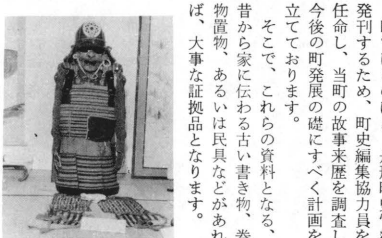 発刊するため、町史編集協力員を
任命し、当町の故事来歴を調査し
今後の町発展の礎にすべく計画を
立てております。
そこで、これらの資料となる、
昔から家に伝わる古い書き物、巻
物置物、あるいは民具などがあれ
ば、大事な証拠品となります。